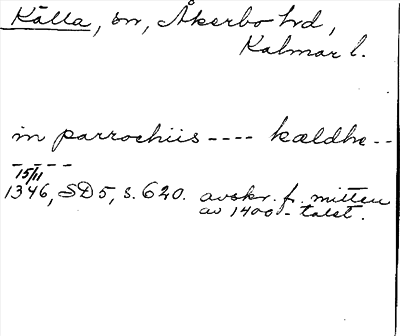 Källa, sn, Åkerbo hd,
Kalmar l.
in parrochiis ---- kældhe --
-----
15/11
1346, SD 5, s. 620. avskr. fr. mitten
av 1400-talet.